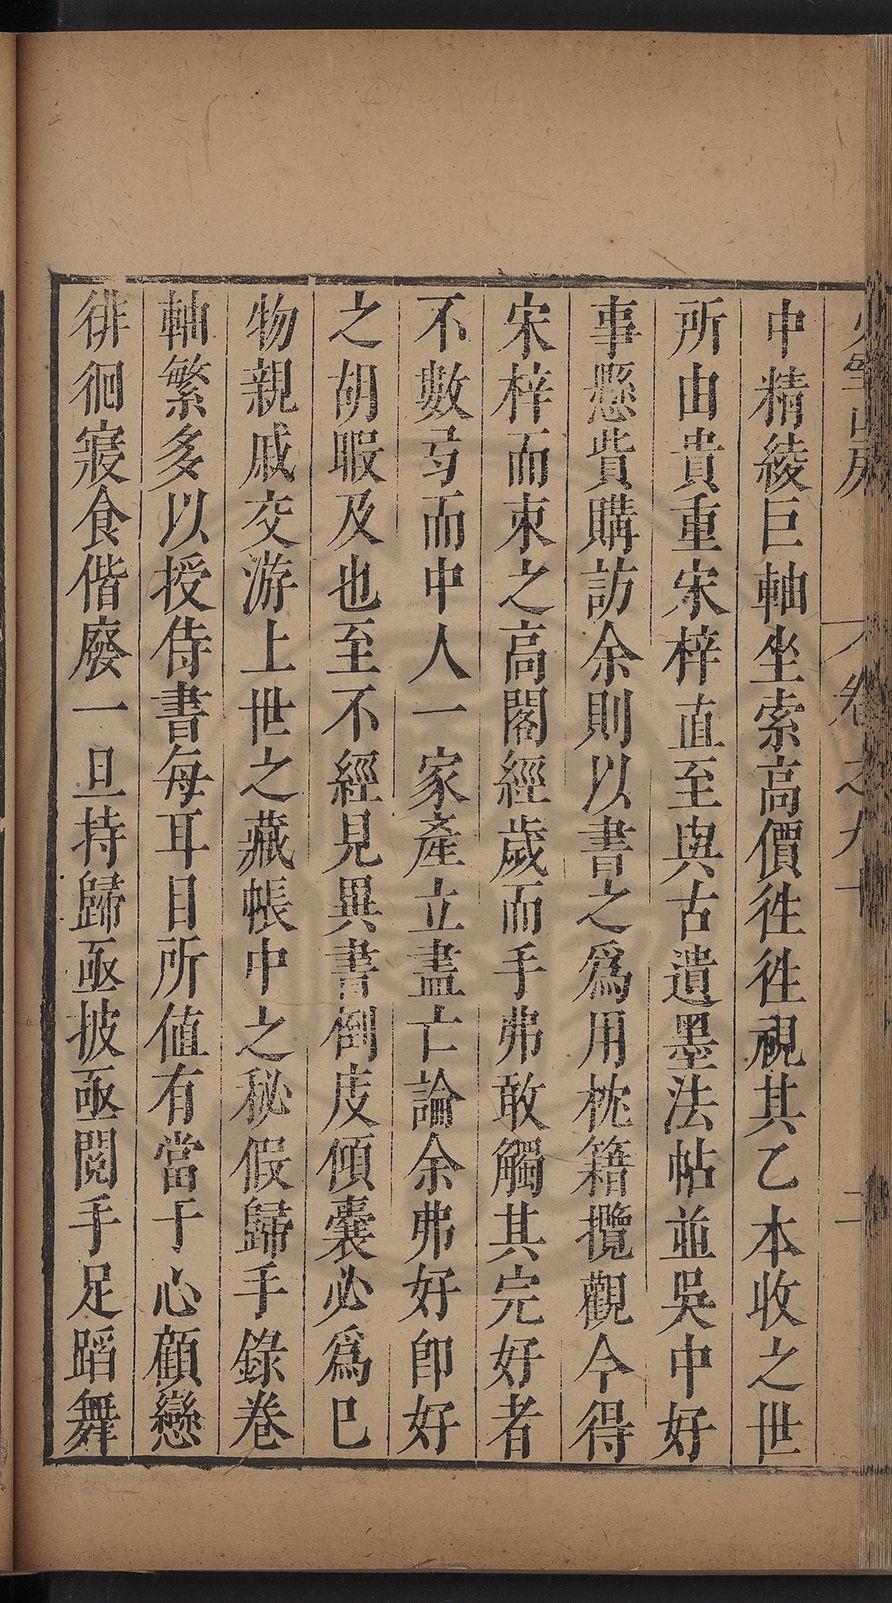 少室山房　卷之九十　二
中精綾巨軸坐索高價徃徃視其乙本收之世
所由貴重宋梓直至與古遺墨法帖並吳中好
事懸貲購訪余則以書之爲用枕籍攬觀今得
宋梓而束之高閣經歲而手弗敢觸其完好者
不數弓而中人一家產立盡亡論余弗好卽好
之胡暇及也至不經見異書倒庋傾囊必爲已
物親戚交游上世之藏帳中之秘假歸手錄卷
軸繁多以授侍書每耳目所値有當于心顧戀
徘徊寢食偕廢一旦持歸亟披亟閱手足蹈舞